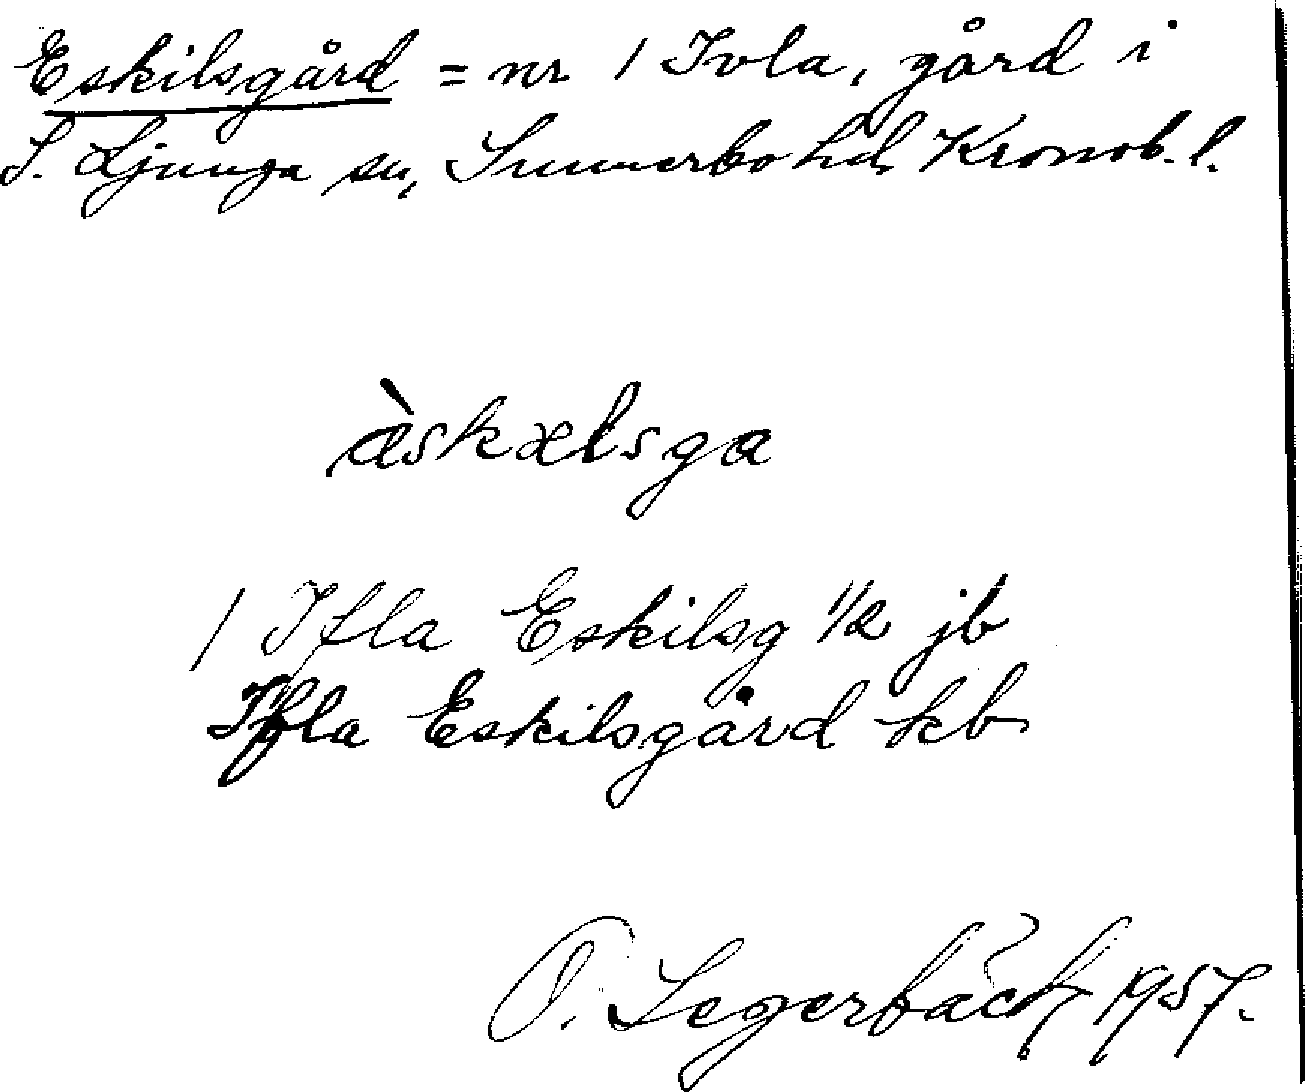 Eskilsgård = nr 1 Ivla, gård i
S. Ljunga sn, Sunnerbo hd, Kronob. l.
æ̀skælsga
1 Ifla Eskilsg 1/2 jb
Ifla Eskilsgård kb
O. Segerbäck 1957.